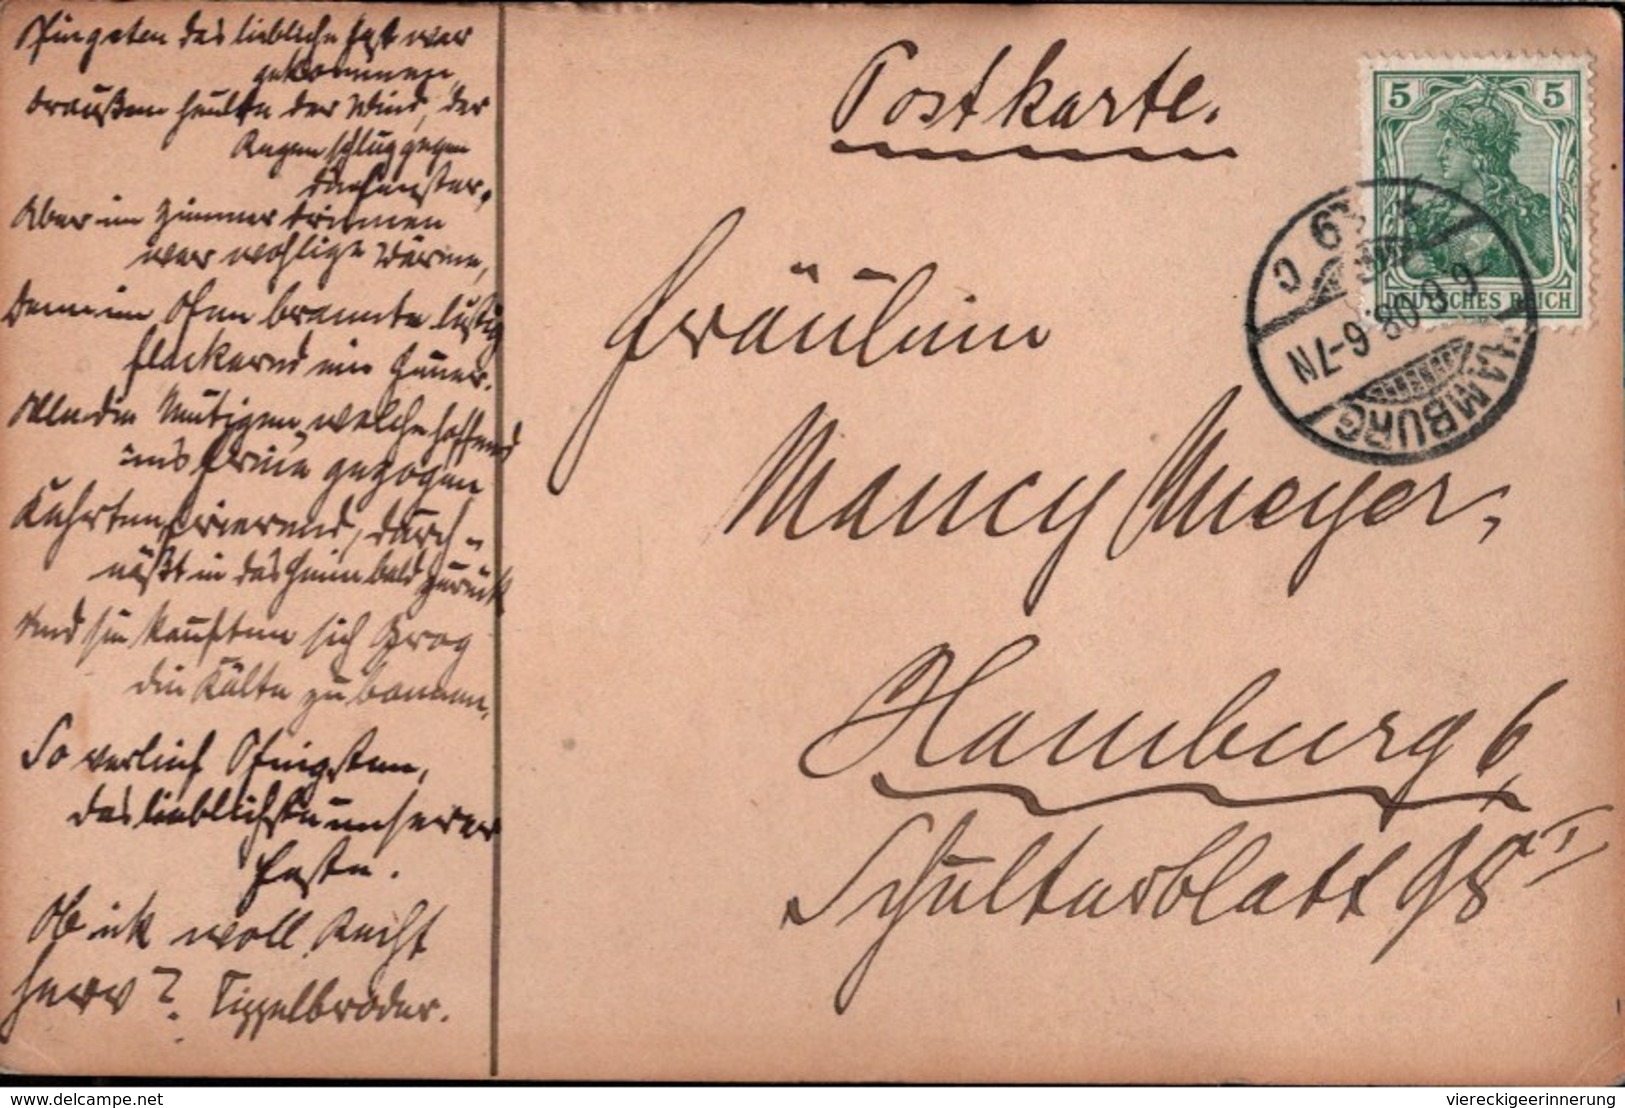 Pfingsten das liebliche Fest war
gekommen,
draußen heulte der Wind, der
Regen schlug gegen
die Fenster,
Aber im Zimmer drinnen
war wohlige Wärme,
Denn im Ofen brannte lustig
flackernd ein Feuer.
Alle die Mutigen, welche hoffend
ins Freie gezogen
Kehrten frierend, durch-
näßt in das Heim bald zurück
Und sie kauften sich Grog
die Kälte zu bannen.
So verlief Pfingsten,
das lieblichste unserer
Feste.
Ob ick woll Recht
heww? Tippelbroder.
Postkarte.
Fräulein
Nancy Meyer,
Hamburg 6
Schulterblatt 98 II
5 5
DEUTSCHES REICH
HAMBURG
9.6.08.6-7N
viereckigeerinnerung
delcampe.net